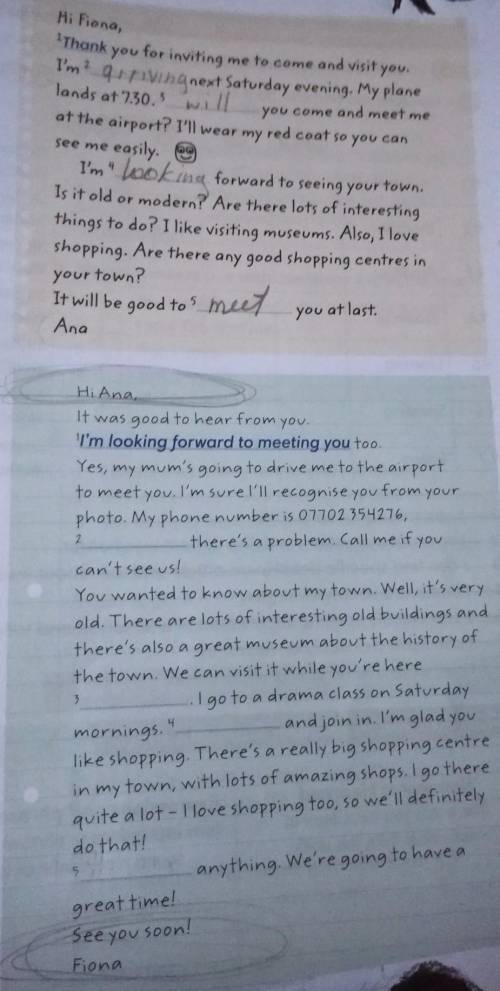 Hi Fiona,
1Thank you for inviting me to come and visit you.
I'm 2 arriving next Saturday evening. My plane
lands at 7.30. 3 will you come and meet me
at the airport? I'll wear my red coat so you can
see me easily.
I'm 4 looking forward to seeing your town.
Is it old or modern? Are there lots of interesting
things to do? I like visiting museums. Also, I love
shopping. Are there any good shopping centres in
your town?
It will be good to 5 meet you at last.
Ana
Hi Ana,
It was good to hear from you.
1I'm looking forward to meeting you too.
Yes, my mum's going to drive me to the airport
to meet you. I'm sure I'll recognise you from your
photo. My phone number is 07702 354276,
2 there's a problem. Call me if you
can't see us!
You wanted to know about my town. Well, it's very
old. There are lots of interesting old buildings and
there's also a great museum about the history of
the town. We can visit it while you're here
3 . I go to a drama class on Saturday
mornings. 4 and join in. I'm glad you
like shopping. There's a really big shopping centre
in my town, with lots of amazing shops. I go there
quite a lot – I love shopping too, so we'll definitely
do that!
5 anything. We're going to have a
great time!
See you soon!
Fiona